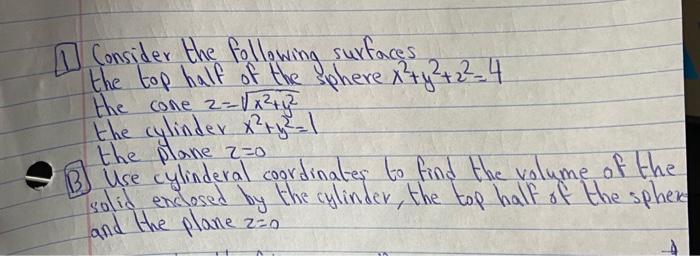 1 Consider the following surfaces
the top half of the sphere x²+y²+z²=4
the cone z=√x²+y²
the cylinder x²+y²=1
the plane z=0
B Use cylinderal coordinates to find the volume of the
solid enclosed by the cylinder, the top half of the sphere
and the plane z=0